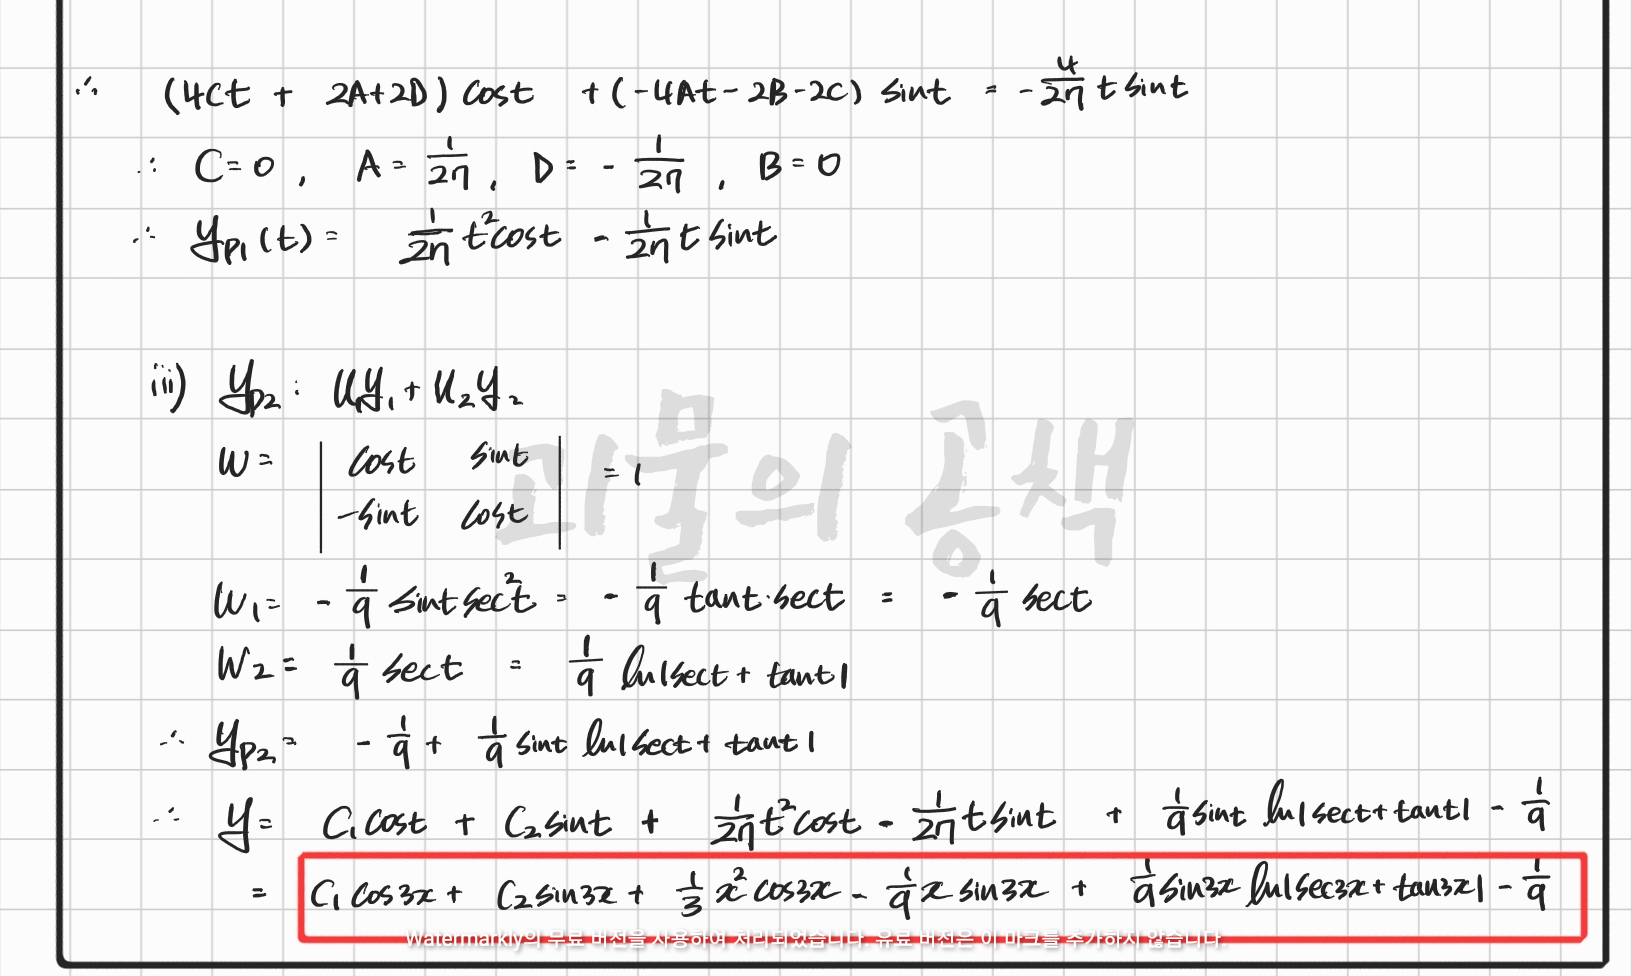 ∴ (4Ct + 2A+2D) cost + (-4At - 2B - 2C) sint = - 4/27 t sint
∴ C=0 , A= 1/27 , D= - 1/27 , B=0
∴ yp₁(t) = 1/27 t² cost - 1/27 t sint
iii) yp₂ : u₁y₁ + u₂y₂
W = | cost sint | = 1
| -sint cost |
W₁= - 1/9 sint sec²t = - 1/9 tant·sect = - 1/9 sect
W₂ = 1/9 sect = 1/9 ln|sect + tant|
∴ yp₂ = - 1/9 + 1/9 sint ln|sect + tant|
∴ y = C₁cost + C₂sint + 1/27 t² cost - 1/27 t sint + 1/9 sint ln|sect + tant| - 1/9
= C₁ cos3x + C₂ sin3x + 1/3 x² cos3x - 1/9 x sin3x + 1/9 sin3x ln|sec3x + tan3x| - 1/9
괴물의 공책
Watermarkly의 무료 버전을 사용하여 처리되었습니다. 유료 버전은 이 마크를 추가하지 않습니다.